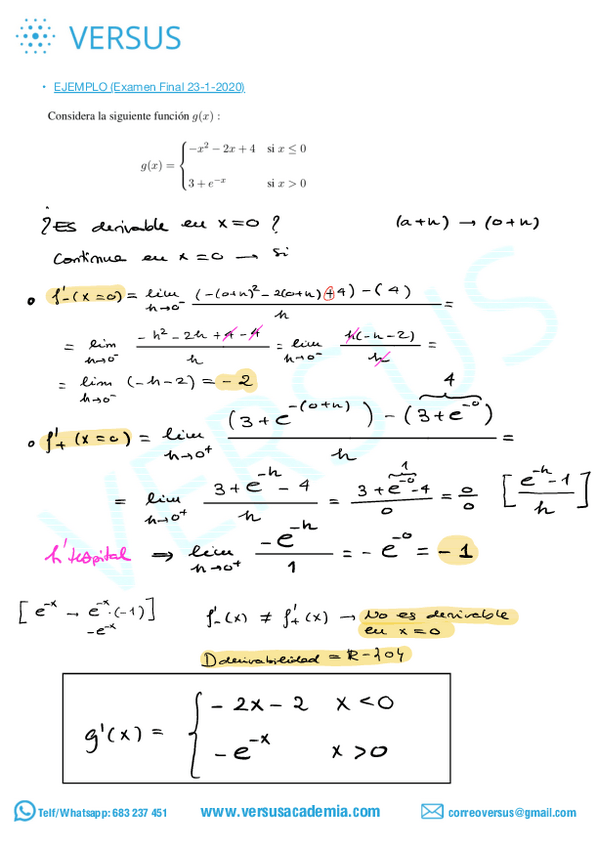 VERSUS
• EJEMPLO (Examen Final 23-1-2020)
Considera la siguiente función g(x) :
g(x) = { −x² − 2x + 4 si x ≤ 0
3 + e^{−x} si x > 0
¿Es derivable en x=0? (a+h) → (0+h)
Continua en x=0 → si
• f'₋(x=0) = lim_{h→0⁻} ((-(0+h)² - 2(0+h) + 4) - (4)) / h =
= lim_{h→0⁻} (-h² - 2h + 4 - 4) / h = lim_{h→0⁻} h(-h-2) / h =
= lim_{h→0⁻} (-h-2) = -2
4
• f'₊(x=0) = lim_{h→0⁺} ((3+e^{-(0+h)}) - (3+e^{-0})) / h =
1
= lim_{h→0⁺} (3+e^{-h} - 4) / h = (3+e^{-0} - 4) / 0 = 0/0 [(e^{-h} - 1) / h]
h'topital ⇒ lim_{h→0⁺} -e^{-h} / 1 = -e^{-0} = -1
[e^{-x} → e^{-x}·(-1)] f'₋(x) ≠ f'₊(x) → No es derivable
-e^{-x} en x=0
D derivabilidad = R-{0}
g'(x) = { -2x-2 x<0
-e^{-x} x>0
VERSUS
Telf/Whatsapp: 683 237 451 www.versusacademia.com correoversus@gmail.com